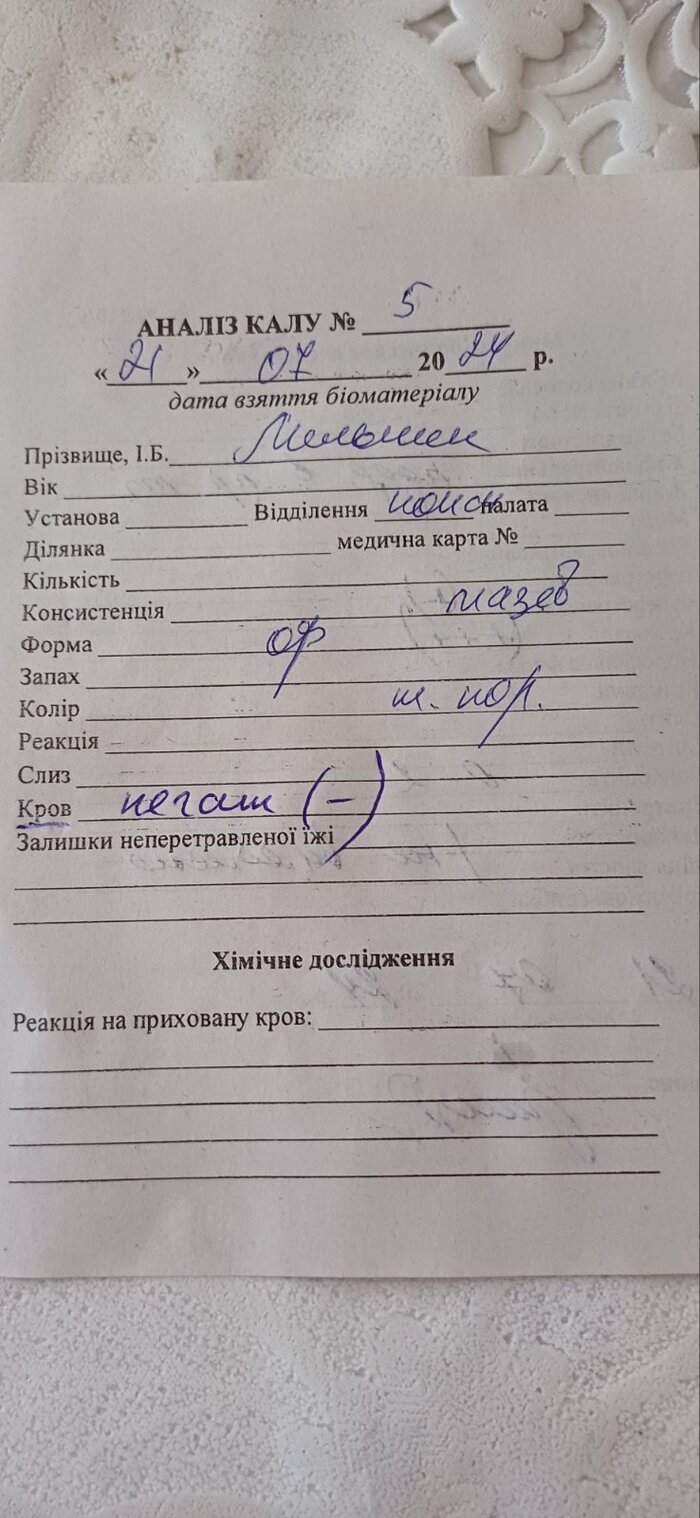 АНАЛІЗ КАЛУ № 5
«21» 07 2024 р.
дата взяття біоматеріалу
Прізвище, І.Б.
Вік
Установа Відділення палата
Ділянка медична карта №
Кількість
Консистенція мазев
Форма оф
Запах
Колір т. кор.
Реакція
Слиз
Кров негат (-)
Залишки неперетравленої їжі
Хімічне дослідження
Реакція на приховану кров: